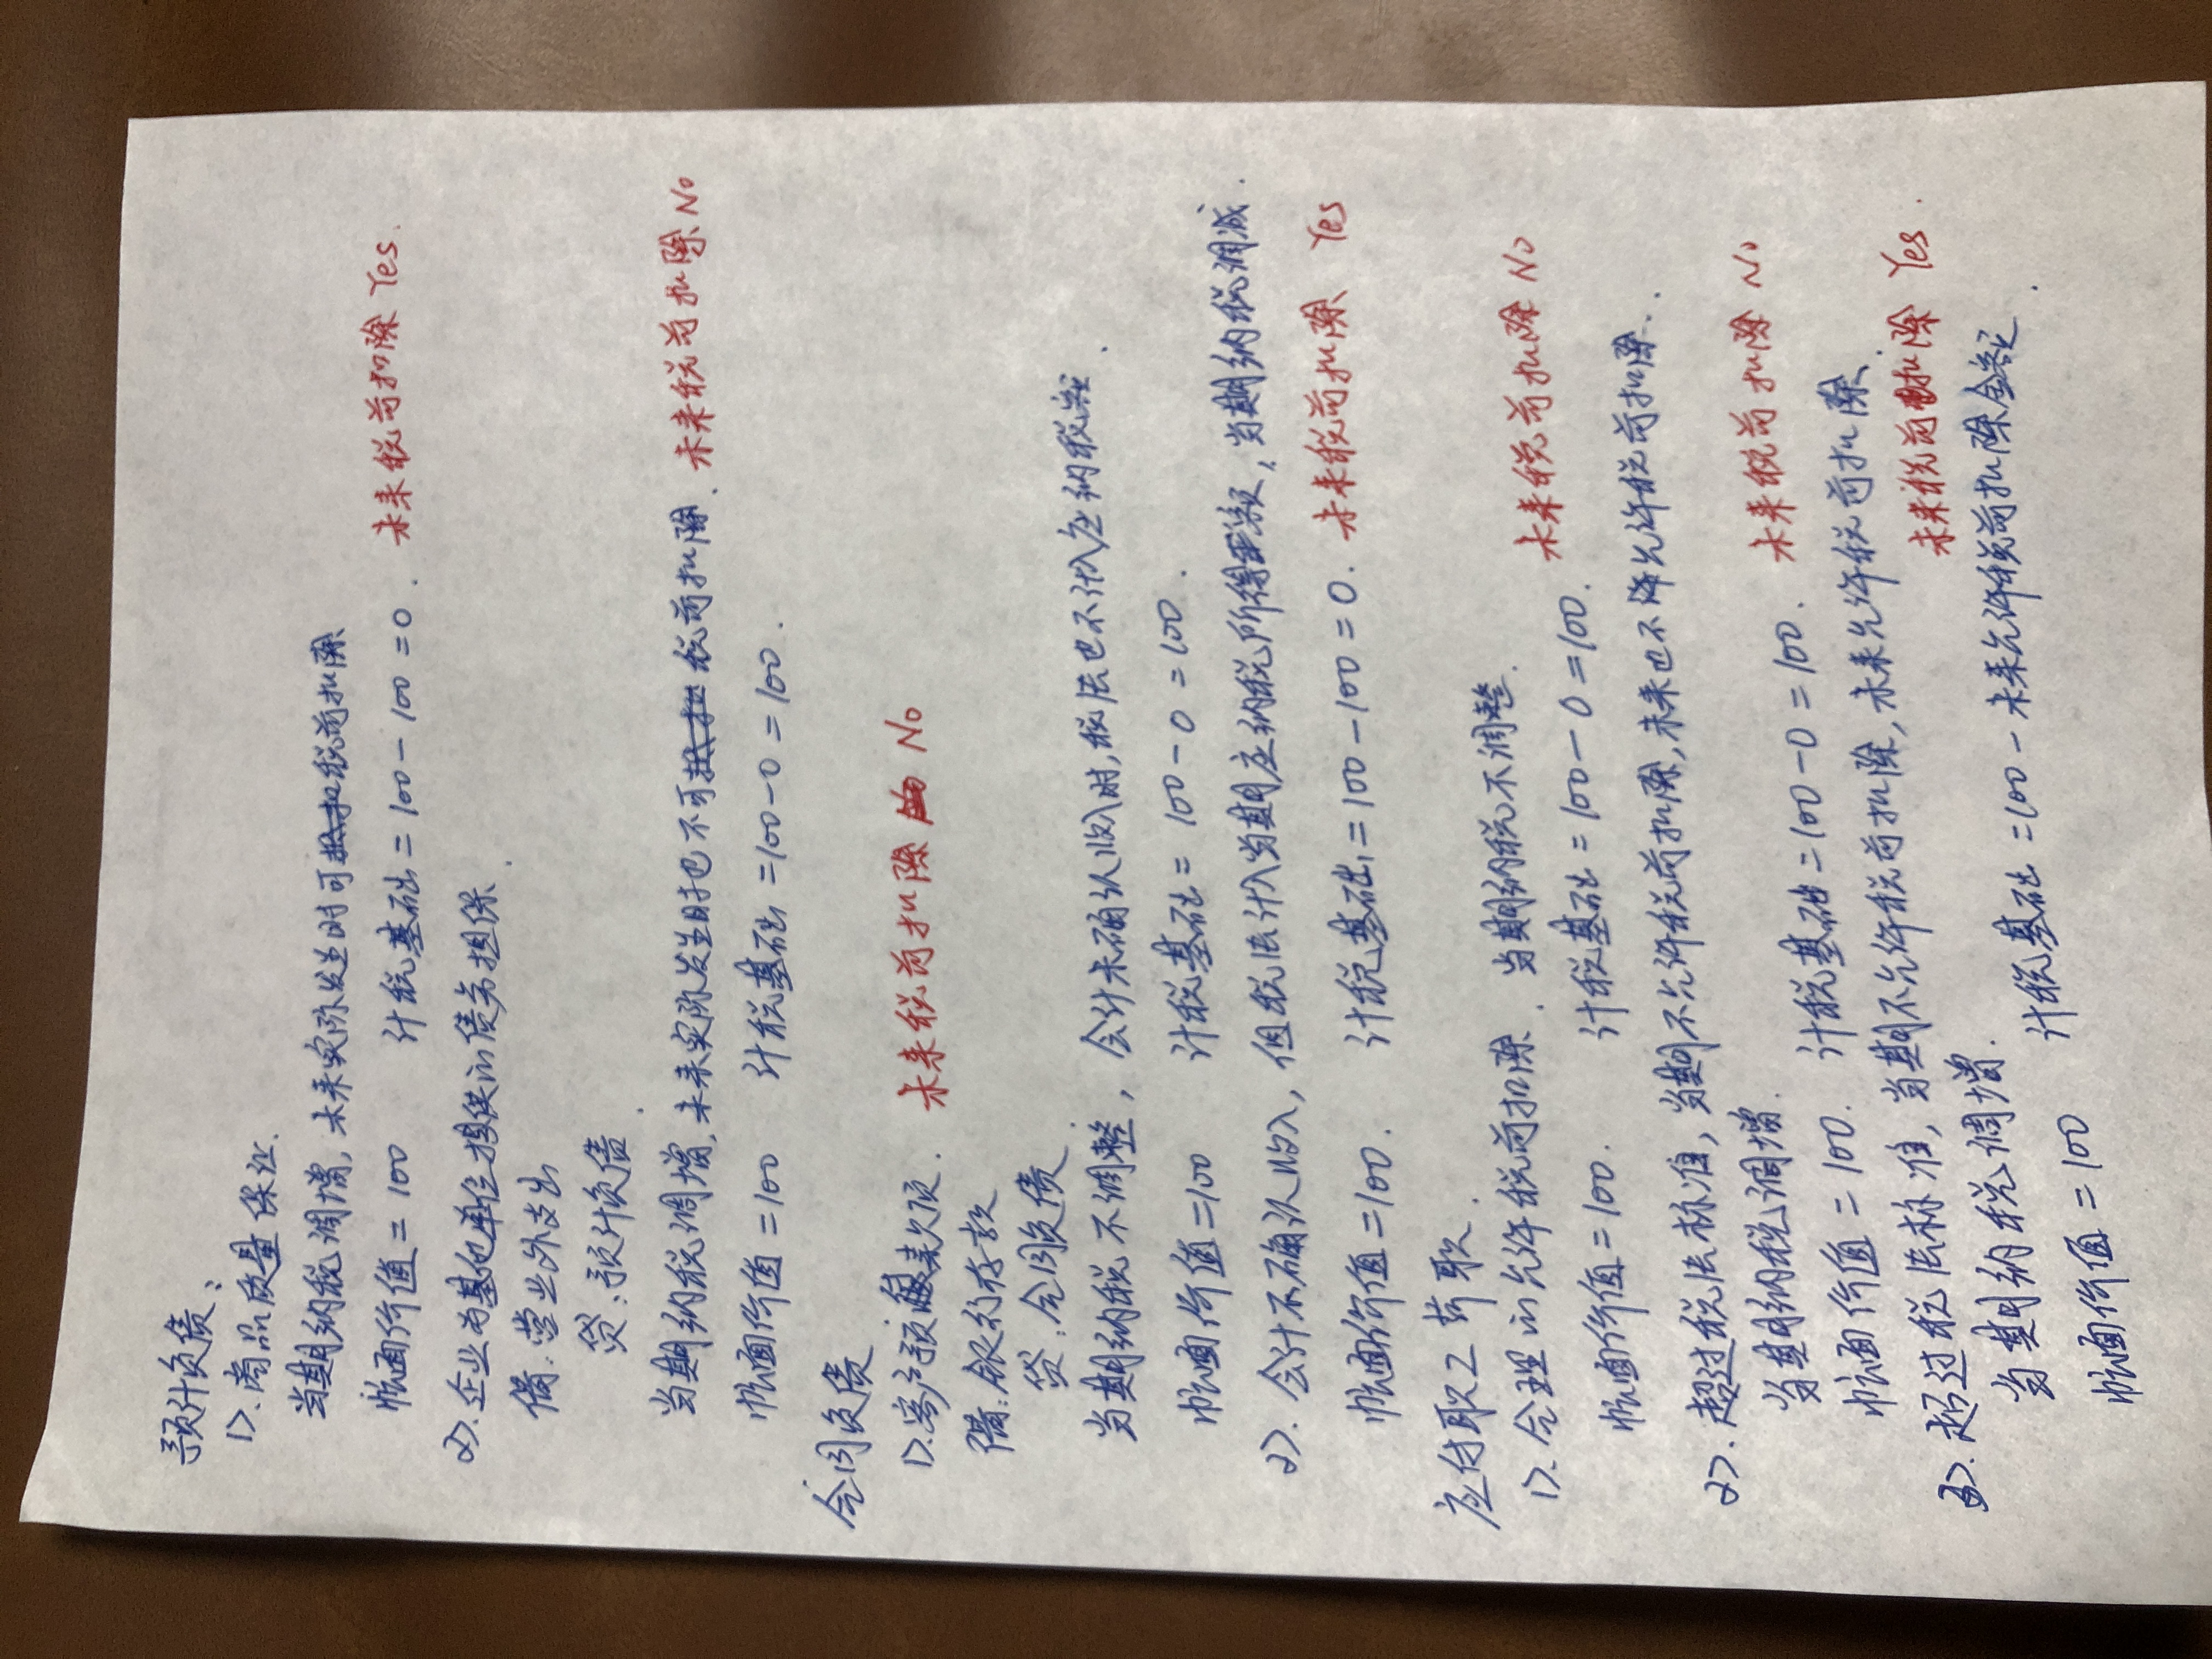 预计负债：
1>. 商品质量保证.
当期纳税调增, 未来实际发生时可税前扣除
帐面价值 = 100 计税基础 = 100 - 100 = 0. 未来税前扣除 Yes.
2>. 企业为其他单位提供的债务担保.
借: 营业外支出
贷: 预计负债.
当期纳税调增, 未来实际发生时也不可税前扣除. 未来税前扣除 No
帐面价值 = 100 计税基础 = 100-0 = 100.
合同负债
1>. 客户预付款项. 未来税前扣除 No
借: 银行存款
贷: 合同负债.
当期纳税不调整, 会计未确认收入时, 税法也不计入应纳税额.
帐面价值 = 100 计税基础 = 100 - 0 = 100.
2>. 会计不确认收入, 但税法计入当期应纳税所得额, 当期纳税调减.
帐面价值 = 100. 计税基础 = 100 - 100 = 0. 未来税前扣除 Yes
应付职工薪职.
1>. 合理的允许税前扣除. 当期纳税不调整. 未来税前扣除 No
帐面价值 = 100. 计税基础 = 100 - 0 = 100.
2>. 超过税法标准, 当期不允许税前扣除, 未来也不允许税前扣除.
当期纳税调增. 未来税前扣除 No
帐面价值 = 100. 计税基础 = 100 - 0 = 100.
3>. 超过税法标准, 当期不允许税前扣除, 未来允许税前扣除.
当期纳税调增. 未来税前扣除 Yes.
帐面价值 = 100 计税基础 = 100 - 未来允许税前扣除金额.